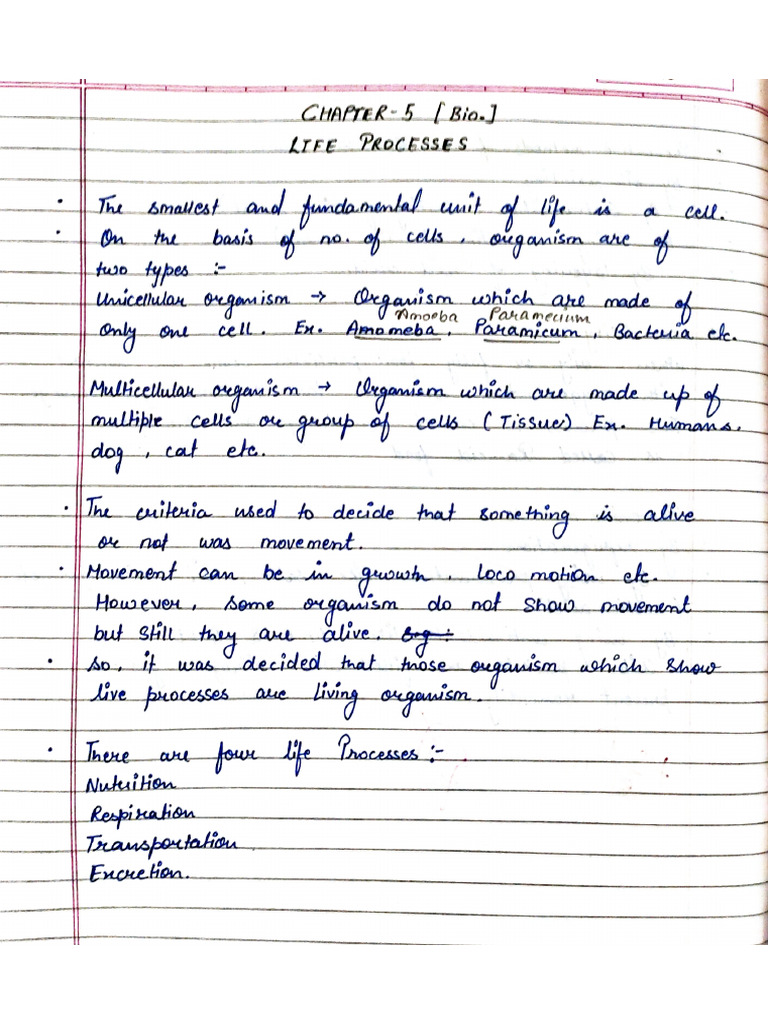 CHAPTER-5 [Bio.]
LIFE PROCESSES
• The smallest and fundamental unit of life is a cell.
• On the basis of no. of cells, organism are of
two types :-
Unicellular organism → Organism which are made of
Amoeba Paramecium
only one cell. Ex. Amomeba, Paramicum, Bacteria etc.
Multicellular organism → Organism which are made up of
multiple cells or group of cells (Tissue) Ex. Humans,
dog, cat etc.
• The criteria used to decide that something is alive
or not was movement.
• Movement can be in growth, loco motion etc.
However, some organism do not show movement
but still they are alive. Eng :-
• So, it was decided that those organism which show
live processes are living organism.
• There are four life Processes :-
Nutrition
Respiration
Transportation
Excretion.